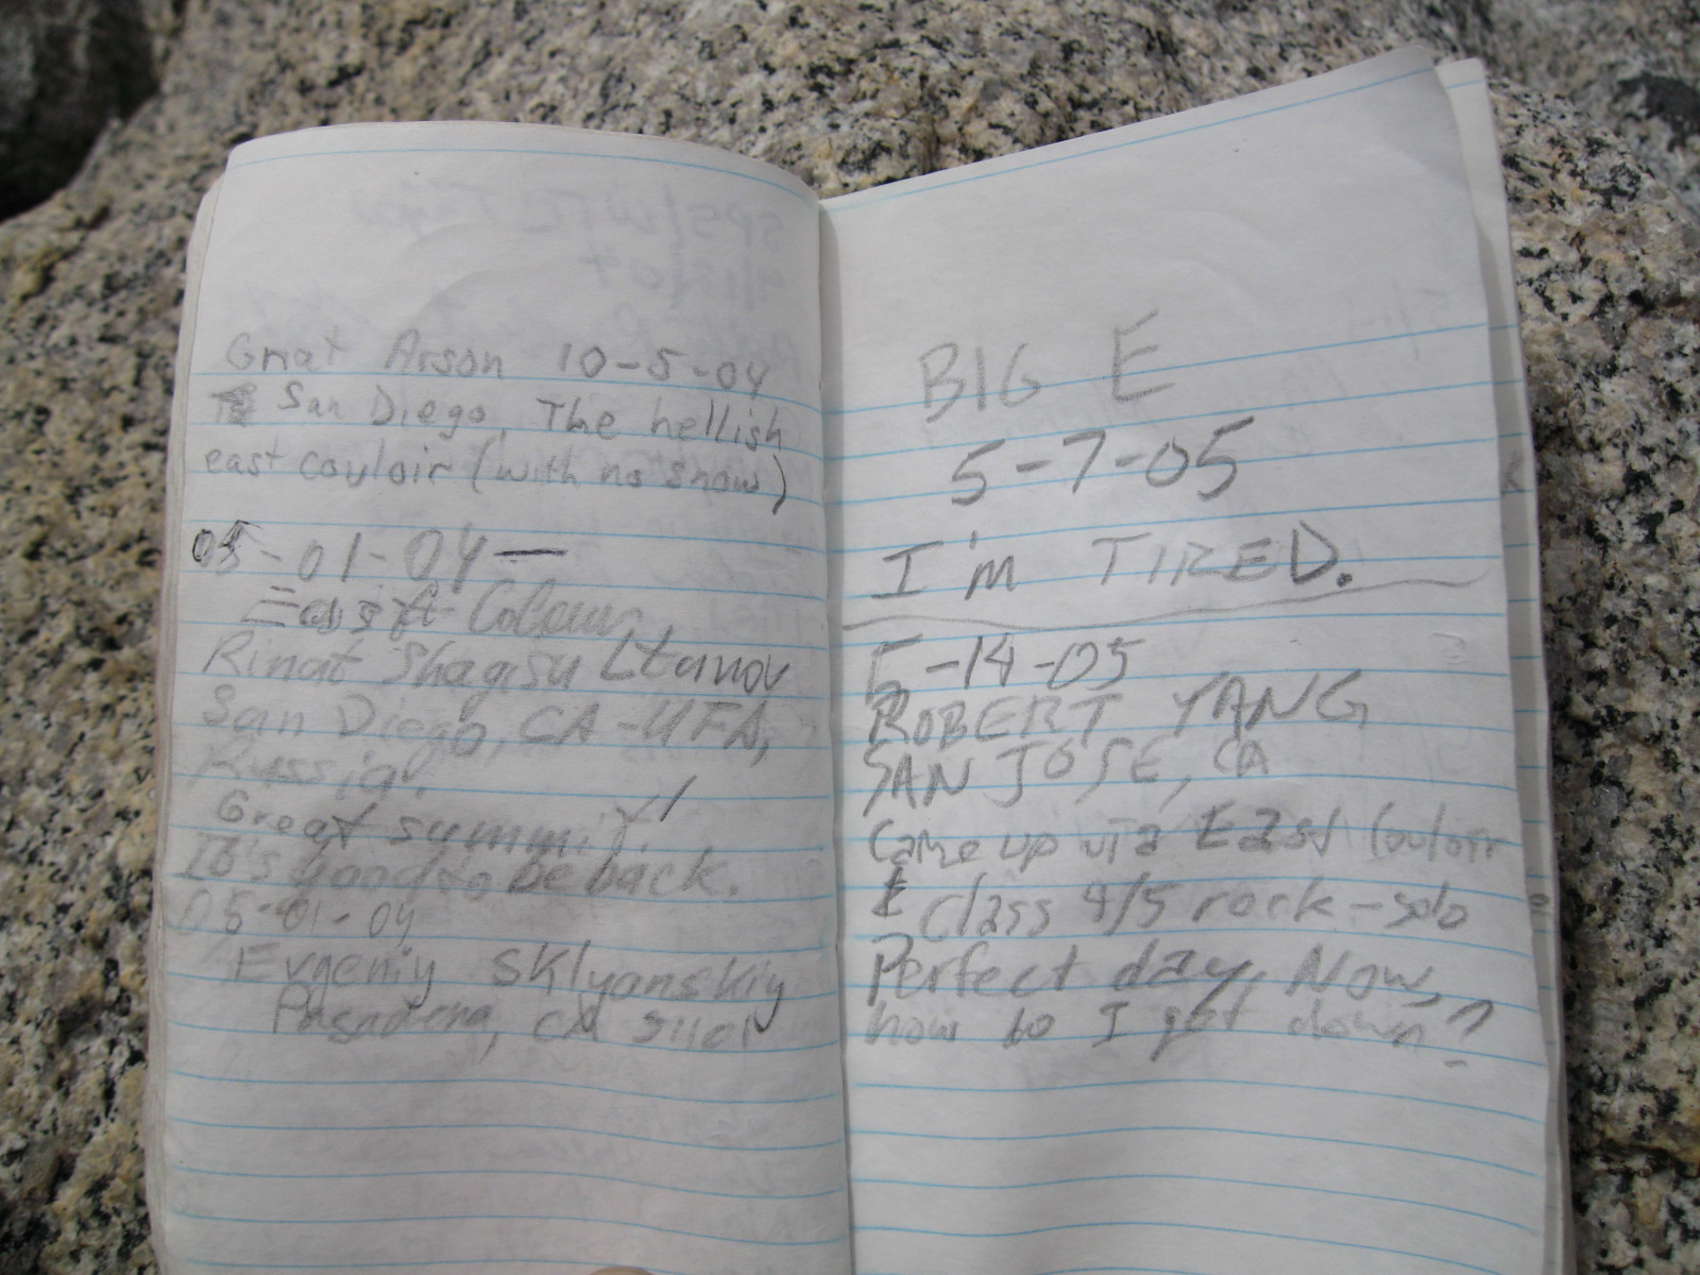 Gnat Arson 10-5-04
San Diego, The hellish
east couloir (with no snow)
05-01-04 —
East Coloeur
Rinat Shagisultanov
San Diego, CA - UFA,
Russia.
Great summit! ✓
It's good to be back.
05-01-04
Evgeniy Sklyanskiy
Pasadena, CA 91101
BIG E
5-7-05
I'm TIRED.
5-14-05
ROBERT YANG
SAN JOSE, CA
Came up via East Couloir
Class 4/5 rock - solo
Perfect day. Now,
how do I get down?